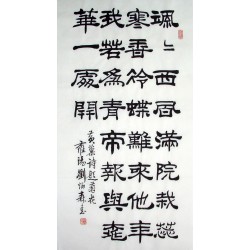 颯〻西風滿院栽蕊
寒香冷蝶難來他年
我若為青帝報與桃
華一處開
黃巢詩題菊花
劉伯森書